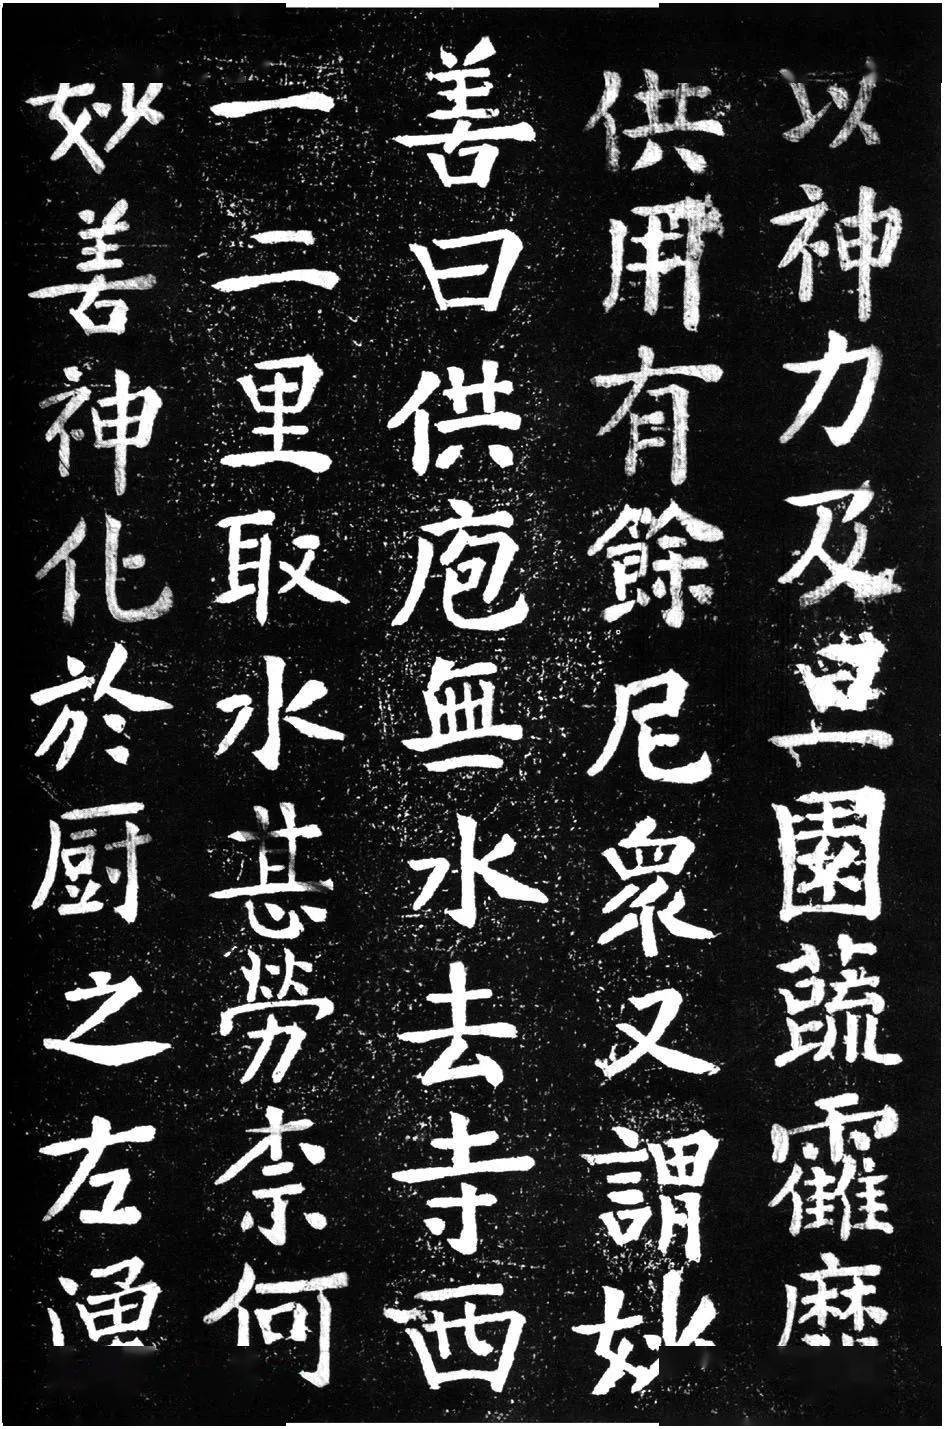 以神力及旦園蔬靃靡
供用有餘尼衆又謂妙
善曰供庖無水去寺西
一二里取水甚勞柰何
妙善神化於厨之左湧